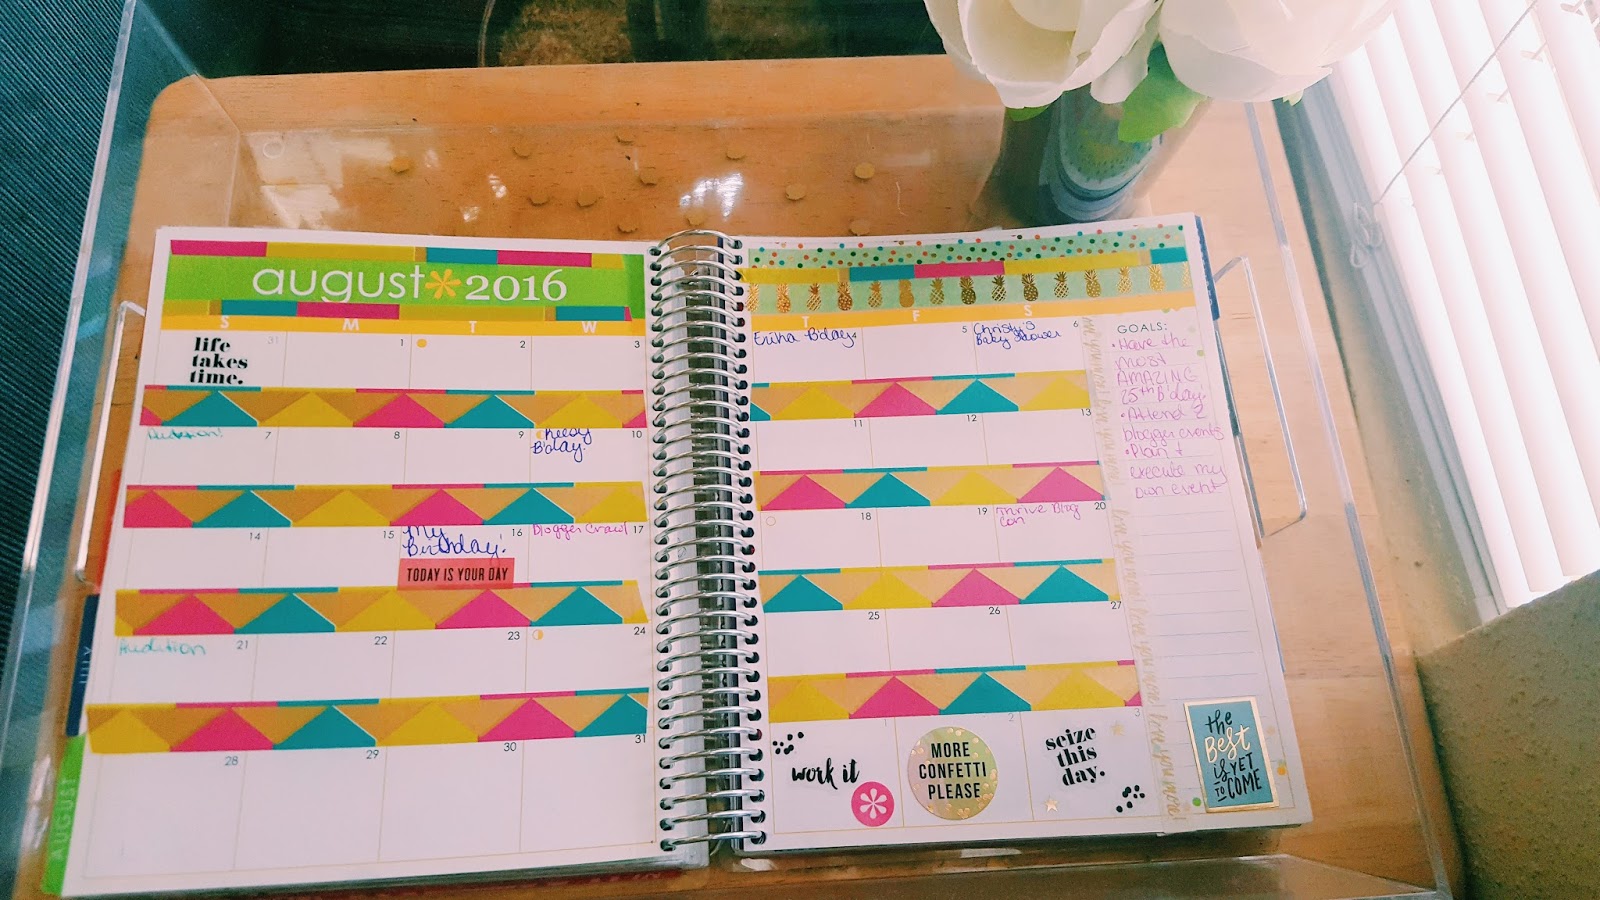 august*2016
S M T W
T F S
life
takes
time.
31 1 2 3
Erika B'day 4 5 6
Christy's
Baby Shower
7 8 9 10
B'day!
11 12 13
14 15 16 17
My
Birthday!
Blogger Crawl
TODAY IS YOUR DAY
18 19 20
Thrive Blog
Con
21 22 23 24
Audition
25 26 27
28 29 30 31
1 2 3
work it
MORE
CONFETTI
PLEASE
seize
this
day.
GOALS:
• Have the
most
AMAZING
25th B'day!
• Attend 2
blogger events
• Plan +
execute my
own event
the
BEST
is YET
TO COME
JULY
AUGUST